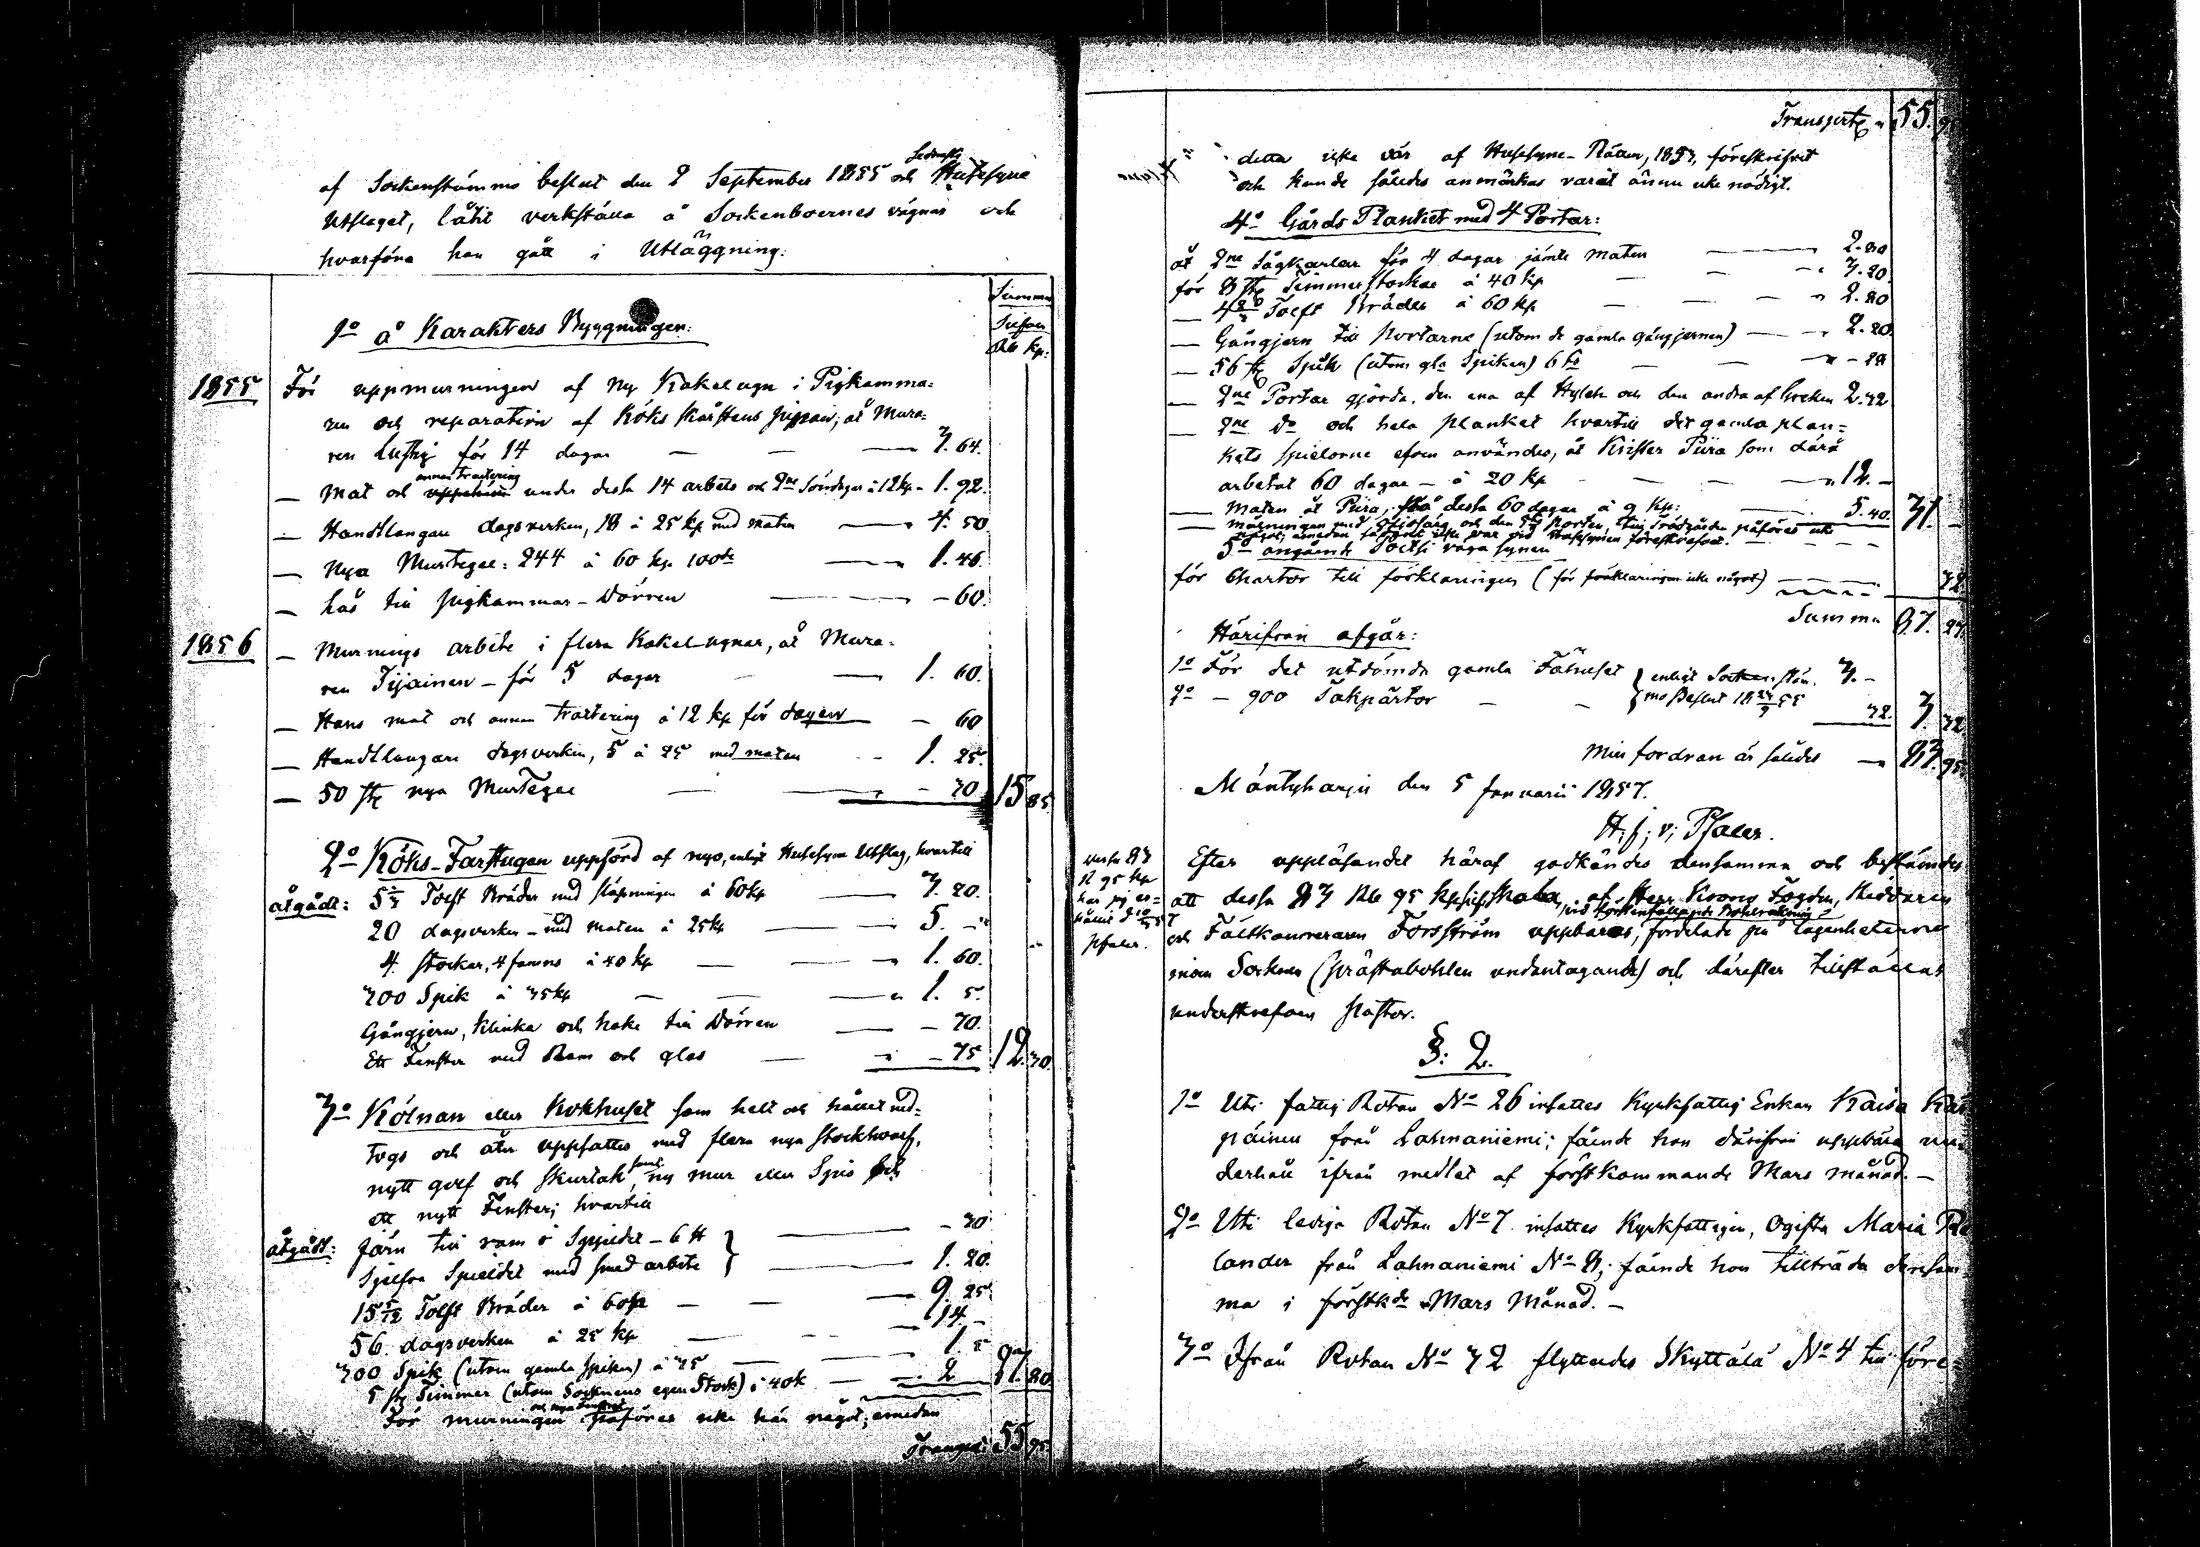 af Sockenstämmo beslut den 2 September 1855 och Husesyne
Utslaget, låtit verkställa å Sockenboernes vägnar och
hvarföre han gått i Utläggning:
Summa
Silfver
Rb kp:
1o å Karakters Byggningen:
1855 För uppmurningen af ny Kakelugn i Pigkamma=
ren och reparation af Köks skorstens pipan; åt Mura=
ren Lustig för 14 dagar — — — 3. 64.
annan tractering
— Mat och under dessa 14 arbets och 2ne Söndagar à 12 kp - 1. 92.
— Handtlangare dagsverken, 18 à 25 kp med maten — 4. 50
— Nya Murtegel: 244 à 60 kp 100de — 1. 46.
— Lås till pigkammar-Dörren — — 60.
1856 — Murnings arbete i flera Kakelugnar, åt Mura=
ren Tijainen - för 5 dagar — 1. 60.
— Hans mat och annan tractering à 12 kp för dagen — - 60
— Handtlangare dagsverken, 5 à 25 med maten - - 1. 25.
— 50 st nya Murtegel — — - 30 15 85
2o Köks-Farstugan uppförd af nyo, enligt Husesyne Utslag, hvartill
åtgådt: 5 1/3 Tolft Bräder med släpningen à 60 kp — 3. 20.
20 dagsverken - med maten à 25 kp — 5. - "
4 stockar, 4 famns à 40 kp — — 1. 60.
300 Spik à 35 kp — — — 1. 5.
Gångjern, klinka och hake till Dörren — - 70.
Ett Fenster med Ram och glas — - 75 12. 30.
3o Kölnan eller Kokhuset som helt och hållet ned=
togs och åter uppsattes med flera nya stockhvarf,
nytt golf och skurtak, samt ny mur eller Spis och
ett nytt Fenster; hvartill
åtgådt: Järn till ram o Spjeldet - 6 ℔ — - 30
Sjelfva Spieldet med smed arbete — 1. 20.
15 5/12 Tolft Bräder à 60 kp — — 9. 25.
56 dagsverken à 25 kp — - - 14 -
300 Spik (utom gamla spiken) à 35 — 1. 5
5 st Timmer (utom Socknens egen Stock) à 40 k — 2 27. 80
För murningen påföres icke här något; emedan
Transport: 55 95
Transport " 55. 95
detta icke var af Husesyne-Rätten, 1853, föreskrifvet
och kunde således anmärkas varit ännu icke nödigt.
4o Gårds Planket med 4 Portar:
åt 2ne Sågkarlar för 4 dagar jämte maten — 2. 80
för 8 st Timmerstockar à 40 kp — - - 3. 20.
— Tolft Bräder à 60 kp — - — 2. 80
— Gångjern till portarne (utom de gamla gångjernen) — 2. 20.
— 56 st Spik (utom gla Spiken) — — -
— 2ne Portar gjorda, den ena af Hylen och den andra af Greken 2. 32
— 2ne Do och hela planket hvartill det gamla plan=
kets spielorne äfven användes, åt Krister Piira som därå
arbetat 60 dagar - à 20 kp - - - - 12. -
— Maten åt Piira, på dessa 60 dagar à 9 kp: — 5. 40. 31. -
målningen med och den Porten, till Trädgården påföres icke
något; emedan sådant icke var vid Husesynen föreskrifvet.
5o angående
för Chartor till förklaringen (för förklaringen icke något) — 32.
Summa 87. 27.
Härifrån afgår:
1o För det utdömda gamla Fähuset } enligt Sockenstäm= 3. -
2o - 900 Takpärtor - - } mo Beslut 55 32. 3. 32
Min fordran är således — 83. 95.
Mäntyharju den 5 Januarii 1857.
H. J. v. Pfaler.
Efter uppläsandet häraf godkändes densamma och bestämdes
att dessa 83 Rb 95 kp silf skola, af Herr Krono Fogden, Riddaren
och Fältkamreraren Forsström uppbäras, fördelade på lägenheterne
inom Socknen (prästabohlen undantagande) och därefter tillställas
underskrefven Pastor.
Pfaler.
§: 2.
1o Uti fattig Rotan No 26 insattes Kyrkfattig Enkan Kaisa
päinen från Lahnaniemi; fäinde hon därifrån uppbära un=
derhåll ifrån medlet af förstkommande Mars månad. —
2o Uti lediga Rotan No 7 insattes Kyrkfattigen, Ogifta Maria
lander från Lahnaniemi No 8; fäinde hon tillträda densam=
ma i förstkde Mars Månad. —
3o Ifrån Rotan No 32 flyttades Skyttälä No 4 till före=